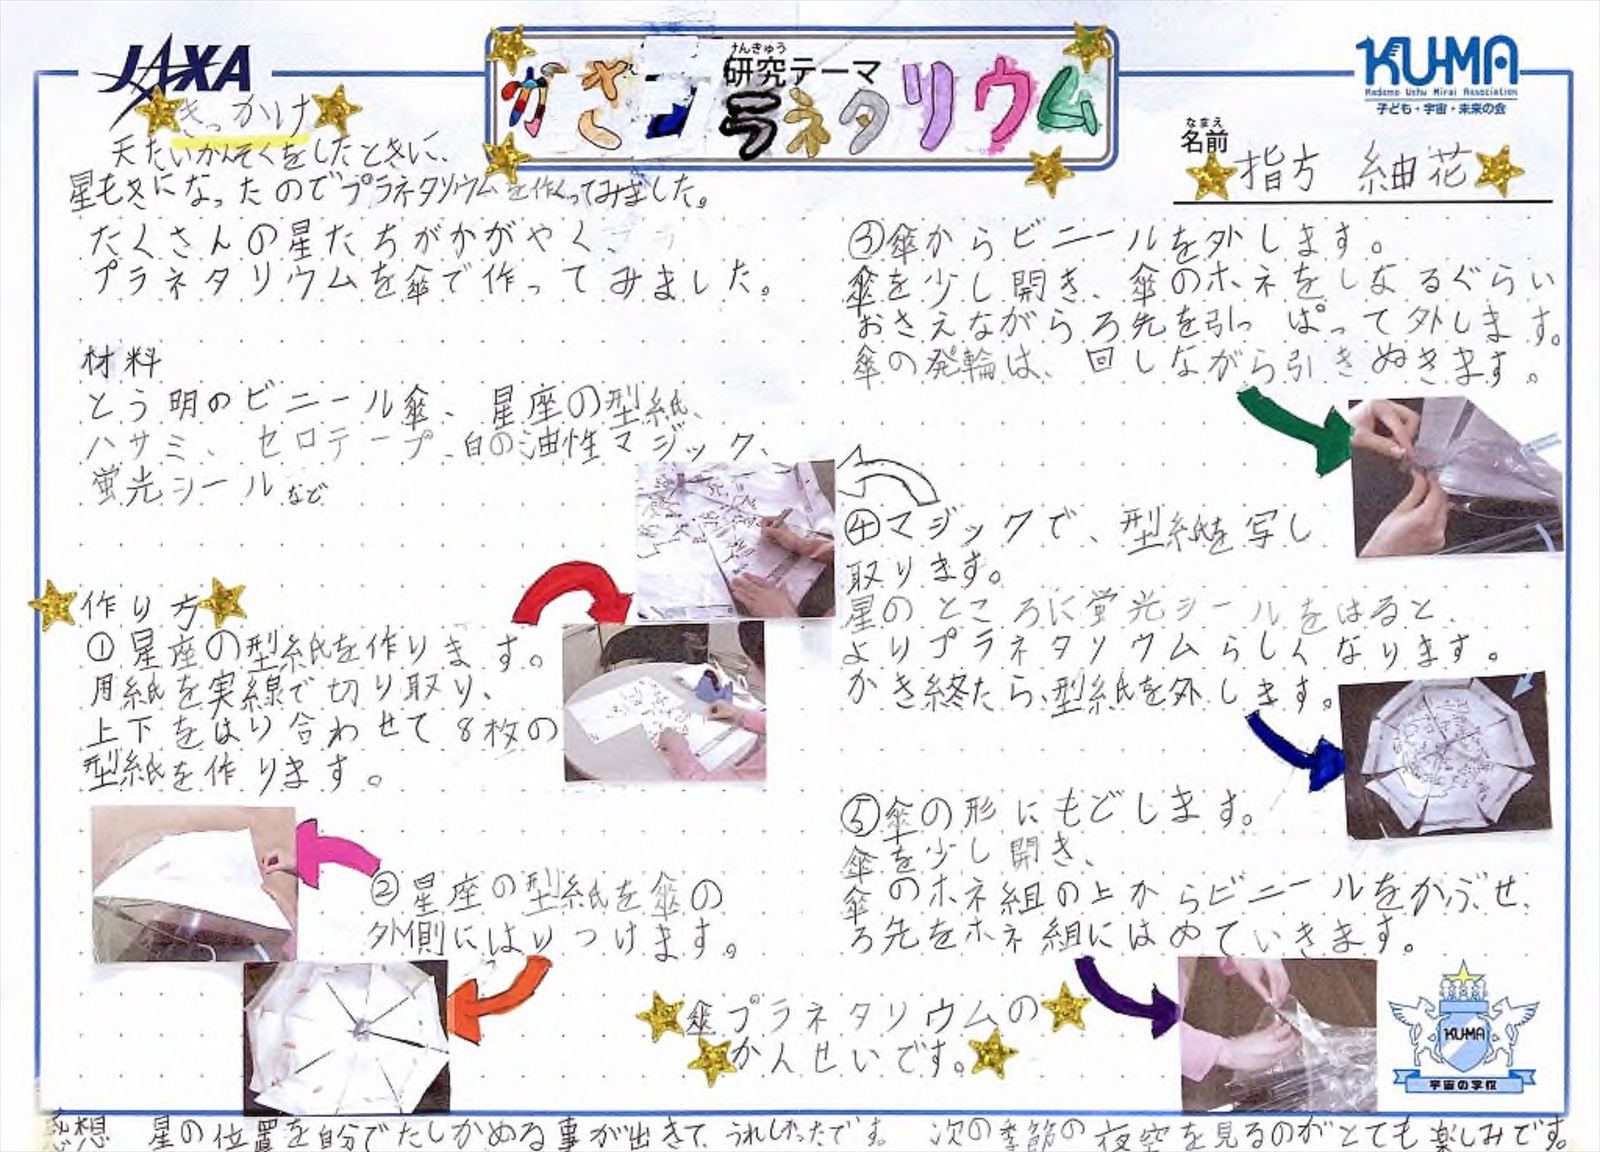 JAXA
けんきゅう
研究テーマ
かさプラネタリウム
KU-MA
Kodomo Uchu Mirai Association
子ども・宇宙・未来の会
なまえ
名前
指方 紬花
きっかけ
天たいかんそくをしたときに、
星もきになったのでプラネタリウムを作くってみました。
たくさんの星たちがかがやく、
プラネタリウムを傘で作ってみました。
材料
とう明のビニール傘、星座の型紙、
ハサミ、セロテープ、白の油性マジック、
蛍光シールなど
作り方
①星座の型紙を作ります。
用紙を実線で切り取り、
上下をはり合わせて8枚の
型紙を作ります。
②星座の型紙を傘の
外側にはりつけます。
③傘からビニールを外します。
傘を少し開き、傘のホネをしなるぐらい
おさえながらろ先を引っぱって外します。
傘の発輪は、回しながら引きぬきます。
④マジックで、型紙を写し
取ります。
星のところに蛍光シールをはると、
よりプラネタリウムらしくなります。
かき終たら、型紙を外します。
⑤傘の形にもどします。
傘を少し開き、
傘のホネ組の上からビニールをかぶせ、
ろ先をホネ組にはめていきます。
傘プラネタリウムの
かんせいです。
KU-MA
宇宙の学校
感想 星の位置を自分でたしかめる事が出きて、うれしかったです。 次の季節の夜空を見るのがとても楽しみです。